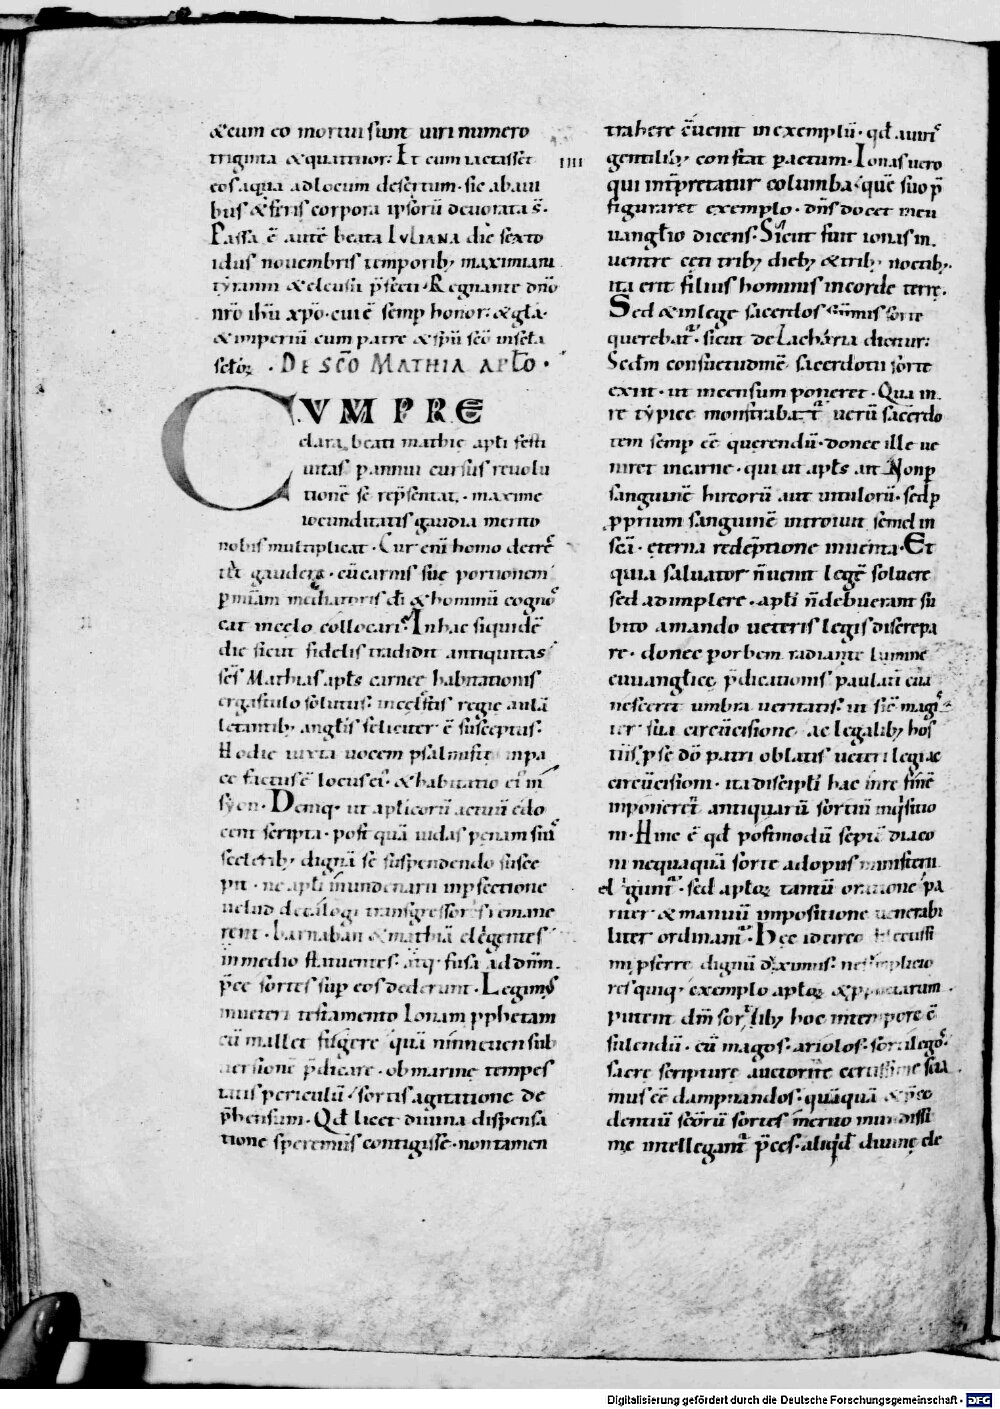 &cum eo mortui sunt uiri numero
triginta &quattuor. Et cum iactasset
eos aqua adlocum desertum. sic abaui
bus &feris corpora ipsorū deuorata s̄.
Passa ē autē beata IVLIANA die sexto
idus nouembris temporib; maximiani
tyranni &eleusii p̄fecti. Regnante dn̄o
nr̄o ihū xp̄o. cui ē semp honor. &gl̄a.
&imperiū cum patre &sp̄u sc̄o insc̄la
sc̄loꝝ. DE SC̄O MATHIA APL̄O.
CVM PRE
clara beati mathię apl̄i festi
uitas p annui cursus reuolu
tionē se rep̄sentat. maxime
iocunditatis gaudia merito
nobis multiplicat. Cur enī homo detrec̄
tet gaudere. cū carnis suę portionem
p miām mediatoris dī &hominū cognos
cat incęlo collocari. In hac siquidē
die sicut fidelis tradidit antiquitas
sc̄s Mathias apl̄s carneę habitationis
ergastulo solutus. incęlestis regię aulā
lętantib; angl̄is feliciter ē susceptus.
Hodie iuxta uocem psalmistę inpa
ce factus ē locus ei'. &habitatio ei' in
syon. Deniq; ut apl̄icorū actuū edo
cent scripta. post quā iudas pęnam suis
scelerib; dignā se suspendendo susce
pit. ne apl̄i inundenarii inpfectione
uelud decalogi transgressores remane
rent. barnaban &mathiā elegentes
inmedio statuentes. atq; fusa ad dn̄m
p̄ce sortes sup eos dederunt. Legimus
inueteri testamento Ionam pphetam
cū mallet fugere quā ninneuen sub
uersionē p̄dicare. ob marinę tempes
tatis periculū sortis agitatione de
p̄hensum. Qd̄ licet diuina dispensa
tione speremus contigisse. non tamen
IIII
trahere ēuenit inexemplū. qd̄ auiris
gentilib; constat pactum. Ionas uero
qui int̄pretatur columba. quę suo p̄
figuraret exemplo. dn̄s docet ineu
uangl̄io dicens. Sicut fuit ionas in
uentre cęti trib; dieb; &trib; noctib;.
ita erit filius hominis incorde terrę.
Sed &inlege sacerdos summus sorte
querebat'. sicut de Zacharia dicitur.
Secdm consuetudinē sacerdotii sorte
exiit. ut incensum poneret. Qua in
re typice monstrabat' uerū sacerdo
tem semp eē querendū. donec ille ue
niret incarne. qui ut apl̄s ait Non p
sanguinē hircorū aut uitulorū. sed p
pprium sanguinē introiuit semel in
sc̄a. ęterna redēptione inuenta. Et
quia saluator n̄uenit legē soluere
sed adimplere. apl̄i n̄debuerant su
bito amando ueteris legis discrepa
re. donec p orbem radiante lumine
euuangl̄icę p̄dicationis paulati eua
nesceret umbra ueritatis. ut sic magis
ter sua circūcisione ac legalib; hos
tiis p se dō patri oblatis ueteri legi ac
circūcisioni. ita discipl̄i hac inre finē
inponeret antiquarū sortiū inq̄sitio
ni. Hinc ē qd̄ postmodū septē diaco
ni nequaquā sorte adopus ministerii
elegunt'. sed aploꝝ tantū oratione pa
riter &manuū inpositione uenerabi
liter ordinant'. Hęc idcirco
ni pferre dignū duximus. ne simplicio
res quiq; exemplo aploꝝ &pphetarum
putent dm̄ sortilib; hoc intempore ē
sulendū. cū magos. ariolos. sortilegos
sacrę scripturę auctoritate certissime scia
mus eē dampnandos. quāquā &p̄ce
dentiū sc̄orū sortes merito mundissi
mę intellegant' p̄ces. aliqd̄ diuinę ele
Digitalisierung gefördert durch die Deutsche Forschungsgemeinschaft - DFG